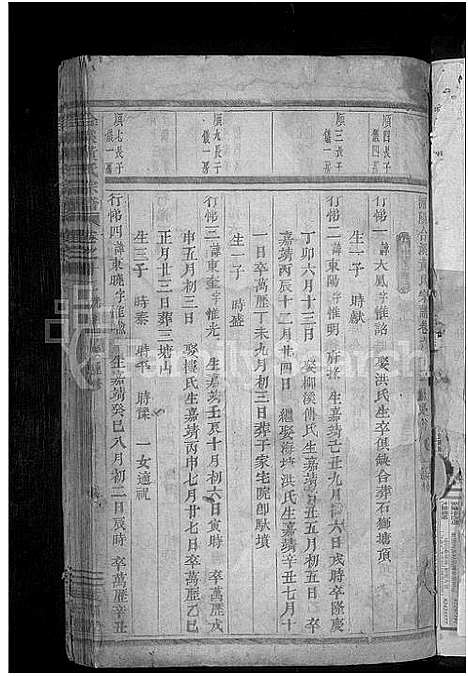 順四長子
儀四房
行悌一 諱大鳳字惟詔 娶洪氏生卒俱缺合葬石獅塘頂
生一子 時獻
順三長子
儀一房
行悌二 諱東陽字惟明 生嘉靖己丑九月十六日戌時卒隆慶
丁卯六月十三日 娶柳溪傅氏生嘉靖 丑五月初五日 卒
嘉靖丙辰十二月廿四日 繼娶海塘洪氏生嘉靖辛丑七月十
一日卒萬歷丁未九月初三日葬于家宅院卽駄墳
生一子 時盛
順九長子
儀一房
行悌三 諱東 字惟光 生嘉靖壬 十月初六日寅時 卒萬歷戊
申五月初三日 娶樓氏生嘉靖丙申七月廿七日卒萬歷乙巳
正月廿三日葬三塘山
生三子 時泰 時平 時 一女適祝
順七長子
儀一房
行悌四 諱東曉字惟 生嘉靖癸巳八月初二日辰時 卒萬歷辛丑
FamilySearch